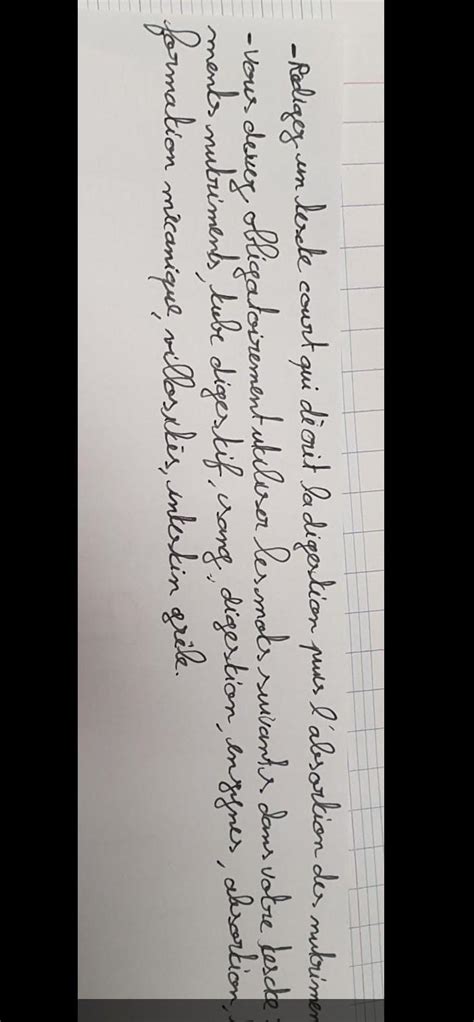 -Redigez un texte court qui décrit la digestion puis l'absortion des nutrimen
-Vous devez obligatoirement utiliser les mots suivants dans votre texte :
ments, nutriments, tube digestif, sang, digestion, enzymes, absortion,
formation mécanique, villosités, intestin grêle.